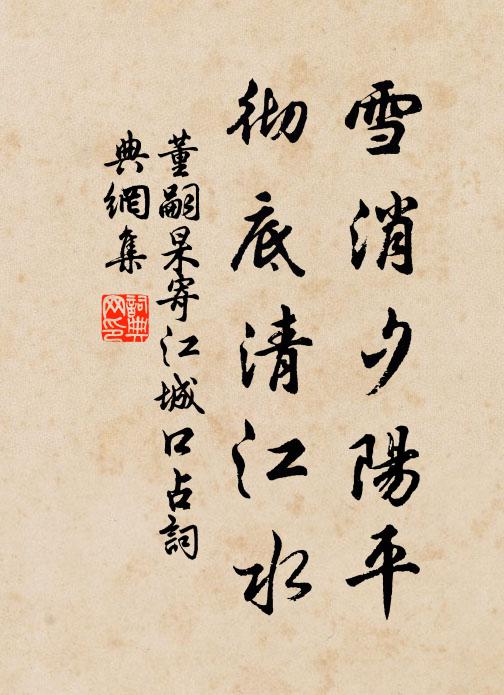 雪消夕陽平
彻底清江水
董嗣杲寄江城口占詞
典網集
詞典網印